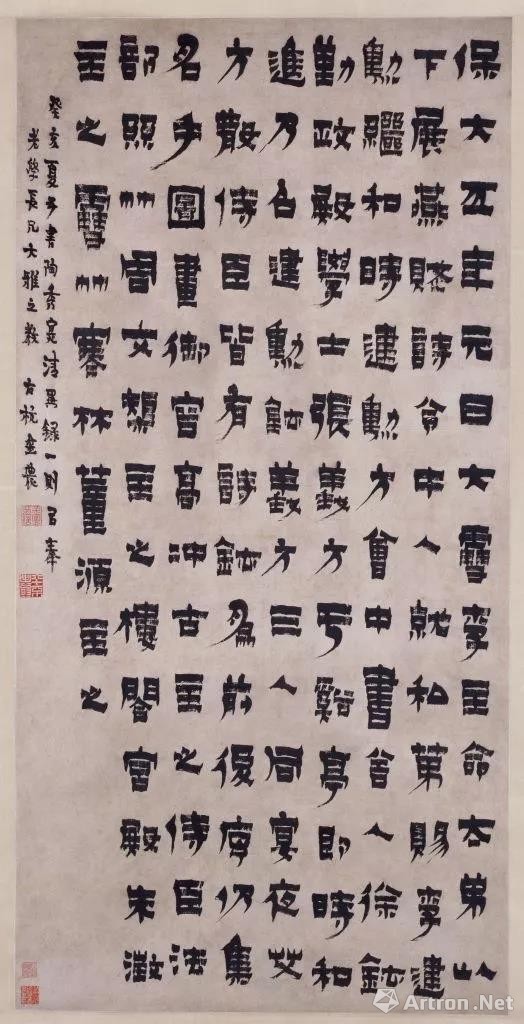 保大五年元日大雪李主命太弟以
下展燕賦詩令中人就和第賜李建
勳繼和時建勳方會中書舍人徐鉉
勤政殿學士張義方于谿亭即時和
進乃召建勳鉉義方三人同宴夜艾
方散侍臣皆有詩鉉為前後序仍集
名手圖畫御容高沖古主之侍臣法
部照竹周文矩主之樓閣宮殿朱澂
主之雪竹寒林董源主之
癸亥夏書陶秀寔清異錄一則㠯奉
老學長兄大雅之教 古杭金農
Artron.Net